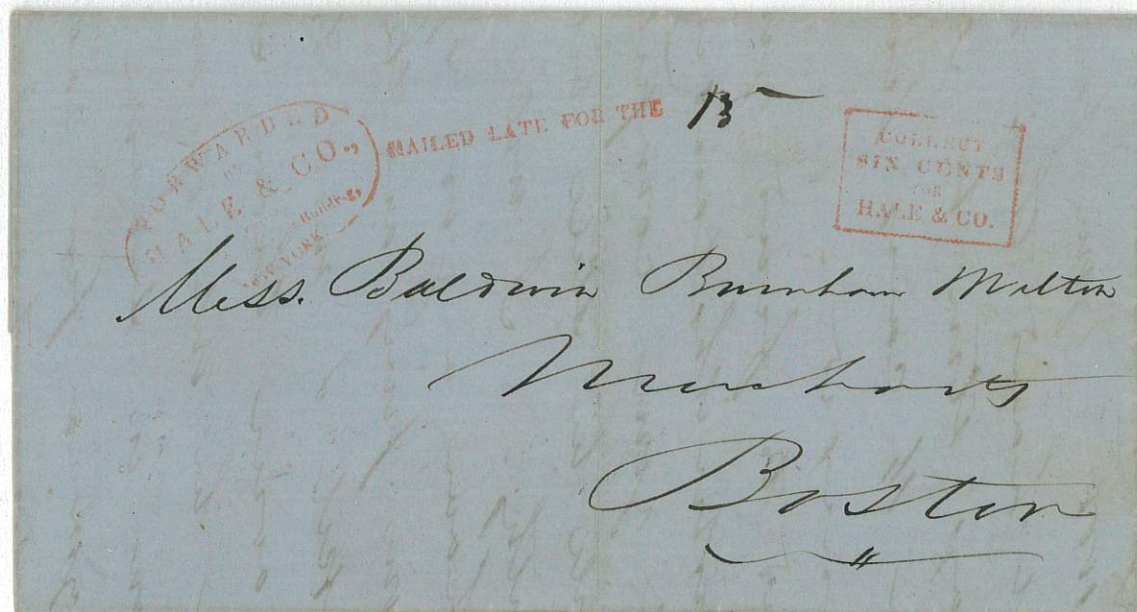 FORWARDED
BY
HALE & CO.,
Building,
NEW YORK
MAILED LATE FOR THE
15
COLLECT
SIX CENTS
FOR
HALE & CO.
Mess. Baldwin Burnham Milton
Merchants
Boston